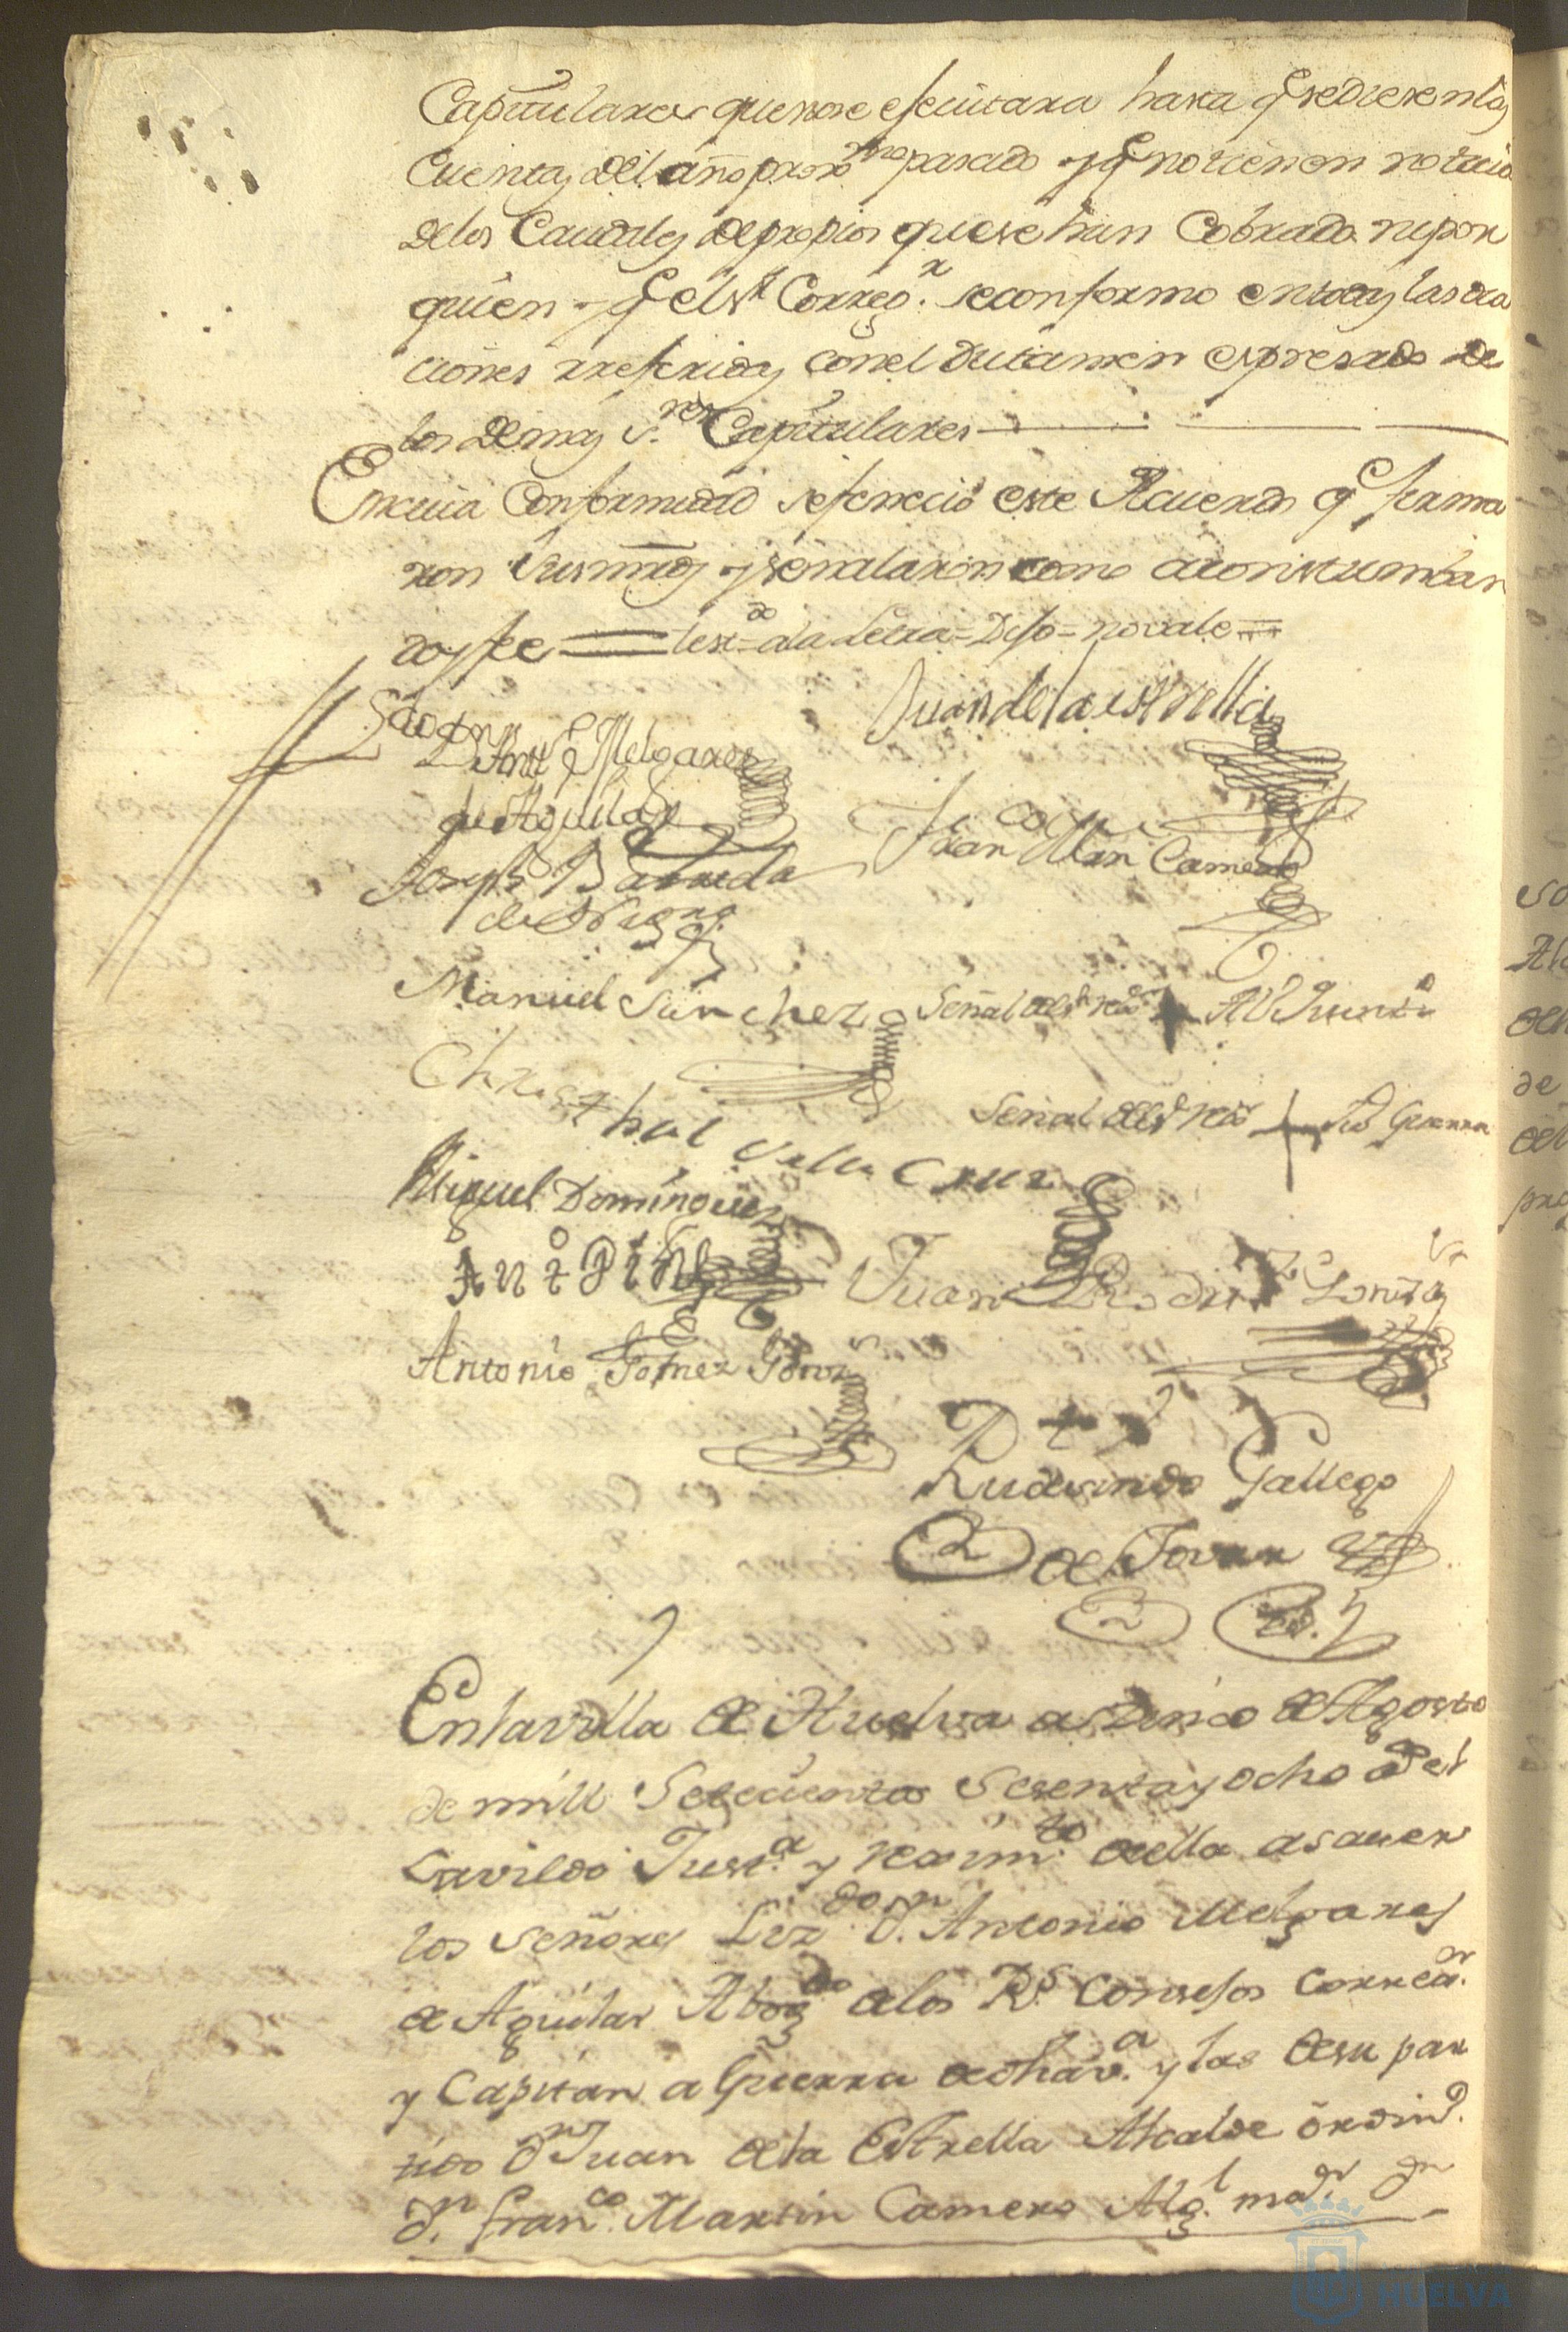 Capitulares que no se esecutara hasta q.e se diesen las
Cuentas del año proxᵐᵒ pasado y q.e no tienen noticia
de los Caudales de propios que se han Cobrado ni por
quien y q.e el Sʳ Correg.ʳ se conformo en todas las oca
ciones rreferidas con el Dictamen espresado de
los demas S.ʳᵉˢ Capitulares
En cuia Conformidad se fenecio este Acuerdo q.e firma
ron sus mrds y señalaron como acostumbran
doy fee = test.ᵈᵒ = a la Letra = Dijo = no vale =
Juan de la estrella
Melgarejo
de Aguilar
Fran.ᶜᵒ Mrn Camero
Joseph Barreda
Manuel Sanchez
Señal del Sʳ Rᵒʳ + Al Juan
Christobal de la Cruz
Señal del Sʳ Rᵒʳ + Guerra
Miguel Dominguez
Juan Rodri
Antonio Gomez
Rudesindo Gallego
de Tovar
En la villa de Huelva a sinco de Agosto
de mill Setecientos Sesenta y ocho a el
Cavildo Just.ᵃ y regim.ᵗᵒ della a saver
los Señores Lizᵈᵒ D.ⁿ Antonio Melgarejo
de Aguilar Abogᵈᵒ de los Rˢ Consejos Correg.ᵒʳ
y Capitan a Guerra de dha v.ᵃ y las de su par
tido Dⁿ Juan de la Estrella Alcalde ordinᵒ.
D.ⁿ Fran.ᶜᵒ Martin Camero Alg.ˡ maᵒʳ. Dⁿ
HUELVA